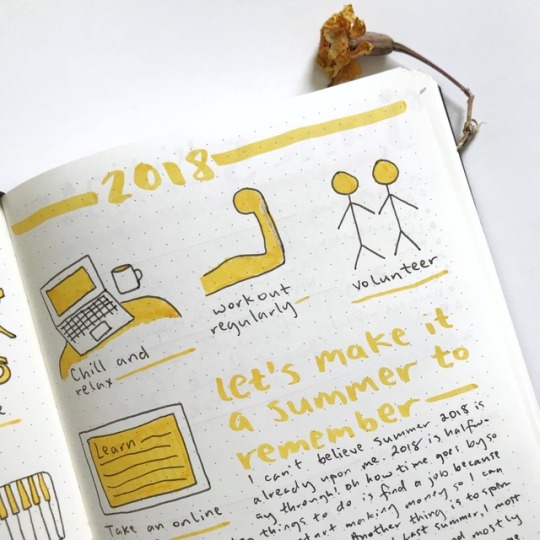 2018
Chill and
relax
workout
regularly
volunteer
Learn
Take an online
let's make it
a summer to
remember
I can't believe summer 2018 is
already upon me. 2018 is halfw-
ay through! Oh how time goes by so
things to do is find a job because
start making money so I can
Another thing is to spen
Last summer, I most
mostly